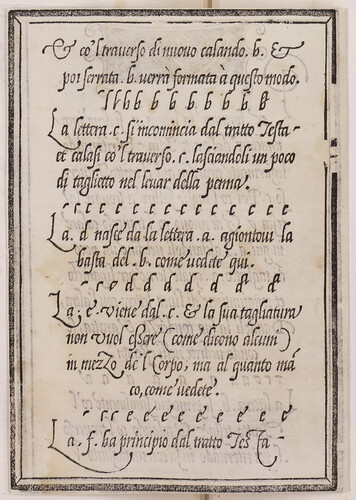 & co'l traverso di nuovo calando. b. &
poi serrata. b. verrà formata à questo modo.
l l b b b b b b b b b
La lettera .c. si incomincia dal tratto Testa-
et calasi co'l traverso .c. lasciandoli un poco
di taglietto nel levar della penna.
c c c c c c c c c c c c
La .d nasce da la lettera .a. agiontovi la
hasta del .b. come vedete qui.
d d d d d d d
La .e. viene dal .c. & la sua tagliatura
non vuol essere (come dicono alcuni)
in mezzo de'l Corpo, ma al quanto mā
co, come vedete.
c c e e e e e e e e
La .f. ha principio dal tratto Testa-